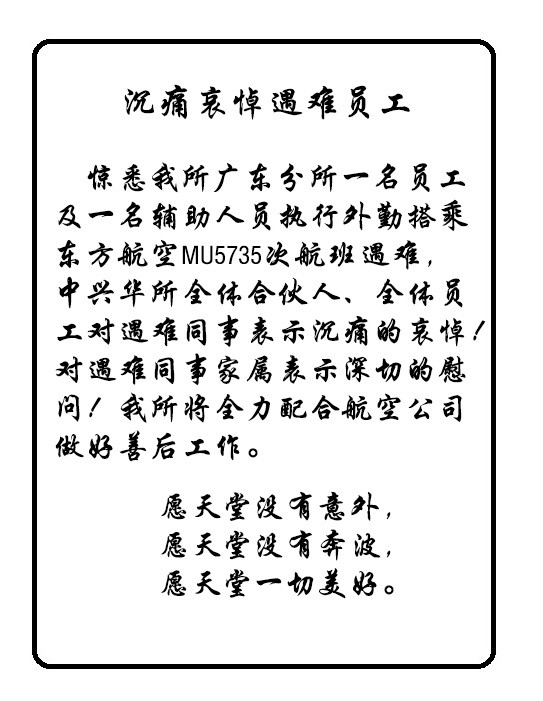 沉痛哀悼遇难员工
惊悉我所广东分所一名员工
及一名辅助人员执行外勤搭乘
东方航空MU5735次航班遇难,
中兴华所全体合伙人、全体员
工对遇难同事表示沉痛的哀悼!
对遇难同事家属表示深切的慰
问!我所将全力配合航空公司
做好善后工作。
愿天堂没有意外,
愿天堂没有奔波,
愿天堂一切美好。